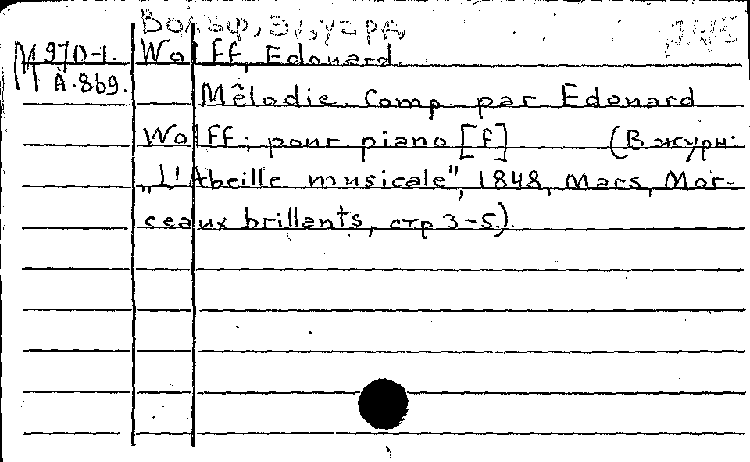 Вольф, Эдуард
М 970-1. Wolff, Edouard.
А.869.
Mêlodie comp par Edouard
Wolff; pour piano [f] (В журн:
„L'Abeille musicale", 1848, Mars, Mor-
ceaux brillants, стр 3-5).